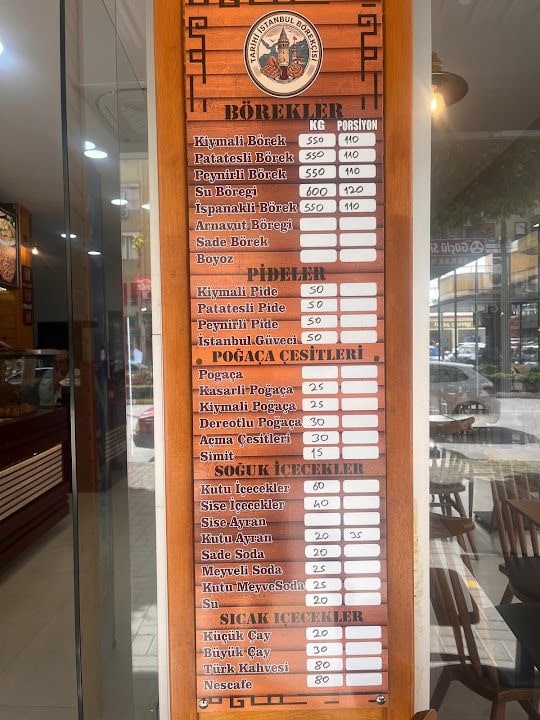 TARİHİ İSTANBUL BÖREKÇİSİ
BÖREKLER
KG PORSİYON
Kiymali Börek 550 110
Patatesli Börek 550 110
Peynirli Börek 550 110
Su Böregi 600 120
İspanakli Börek 550 110
Arnavut Böregi
Sade Börek
Boyoz
PİDELER
Kiymali Pide 50
Patatesli Pide 50
Peynirli Pide 50
İstanbul Güveci 50
POĞAÇA ÇESİTLERİ
Pogaça
Kasarli Poğaça 25
Kiymali Poğaça 25
Dereotlu Poğaça 30
Açma Çesitleri 30
Simit 15
SOĞUK İCECEKLER
Kutu İçecekler 60
Sise İçecekler 40
Sise Ayran
Kutu Ayran 20 35
Sade Soda 20
Meyveli Soda 25
Kutu MeyveSoda 25
Su 20
SICAK İÇECEKLER
Küçük Çay 20
Büyük Çay 30
Türk Kahvesi 80
Nescafe 80